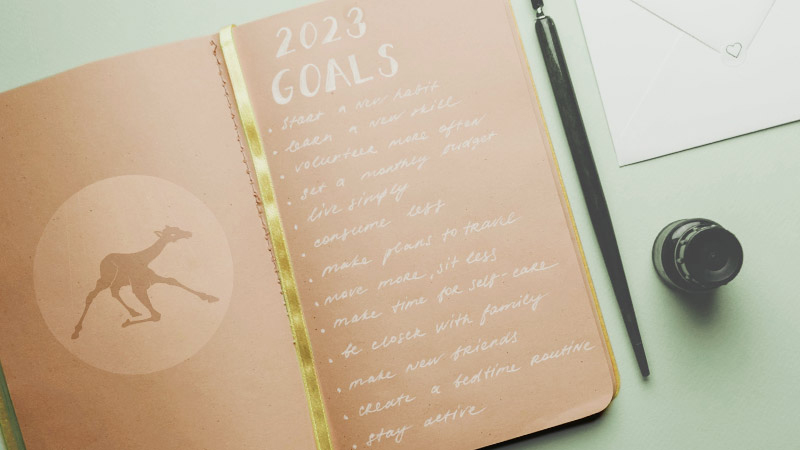 2023
GOALS
• start a new habit
• learn a new skill
• volunteer more often
• set a monthly budget
• live simply
• consume less
• make plans to travel
• move more, sit less
• make time for self-care
• be closer with family
• make new friends
• create a bedtime routine
• stay active